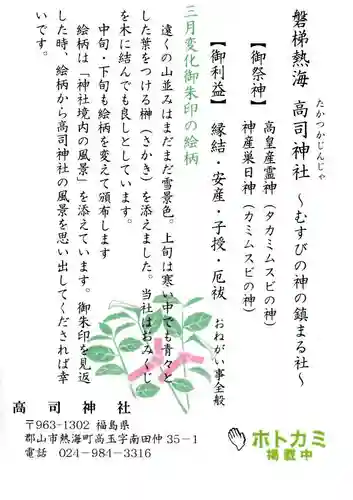 磐梯熱海 高司神社 ~むすびの神の鎮まる社~
たかつかじんじゃ
【御祭神】
高皇産霊神(タカミムスビの神)
神産巣日神(カミムスビの神)
【御利益】 縁結・安産・子授・厄祓 おねがい事全般
三月変化御朱印の絵柄
遠くの山並みはまだまだ雪景色。上旬は寒い中でも青々と
した葉をつける榊(さかき)を添えました。当社はおみくじ
を木に結んでも良しとしています。
中旬・下旬も絵柄を変えて頒布します
絵柄は「神社境内の風景」を添えています。御朱印を見返
した時、絵柄から高司神社の風景を思い出してくだされば幸
いです。
高司神社
〒963-1302 福島県
郡山市熱海町高玉字南田仲35-1
電話 024-984-3316
ホトカミ
掲載中